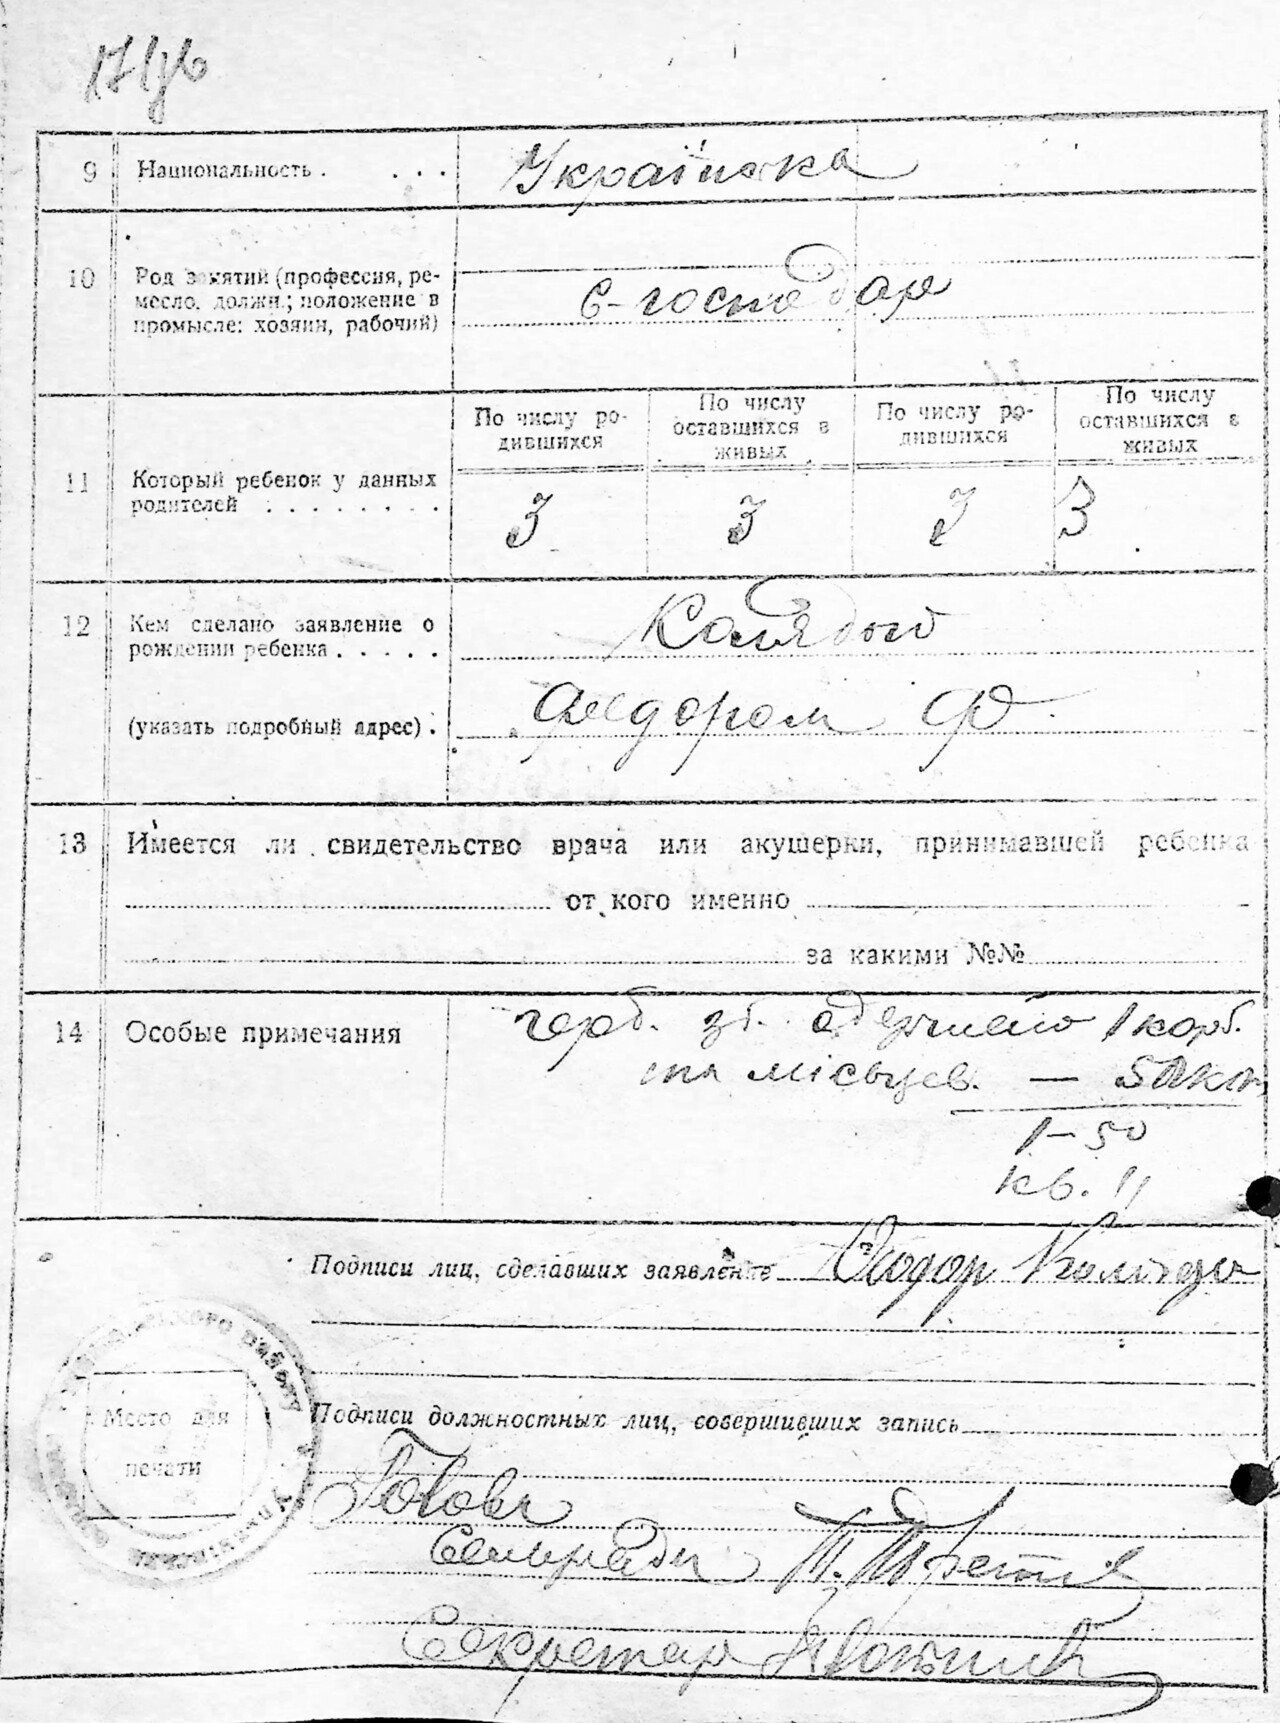 9 Национальность . . . . Українська
10 Род занятий (профессия, ре-
месло, должн.; положение в
промысле: хозяин, рабочий)
с-господар
По числу ро-
дившихся
По числу
оставшихся в
живых
По числу ро-
дившихся
По числу
оставшихся в
живых
11 Который ребенок у данных
родителей . . . . . . . .
3 3 3 3
12 Кем сделано заявление о
рождении ребенка . . . . .
Колядою
(указать подробный адрес) .
Федором Ф.
13 Имеется ли свидетельство врача или акушерки, принимавшей ребенка
от кого именно
за какими №№
14 Особые примечания
герб. зб. одержано 1 карб.
та місцев. — 50 коп
1-50
кв. 11
Подписи лиц, сделавших заявление Федор Коляда
Место для
печати
Подписи должностных лиц, совершивших запись
Голова
Сельради
Секретар